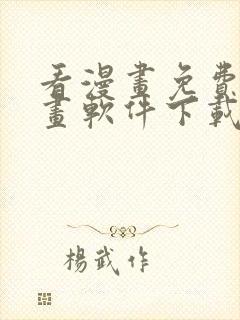 看漫畫免費
畫軟件下載
楊武作